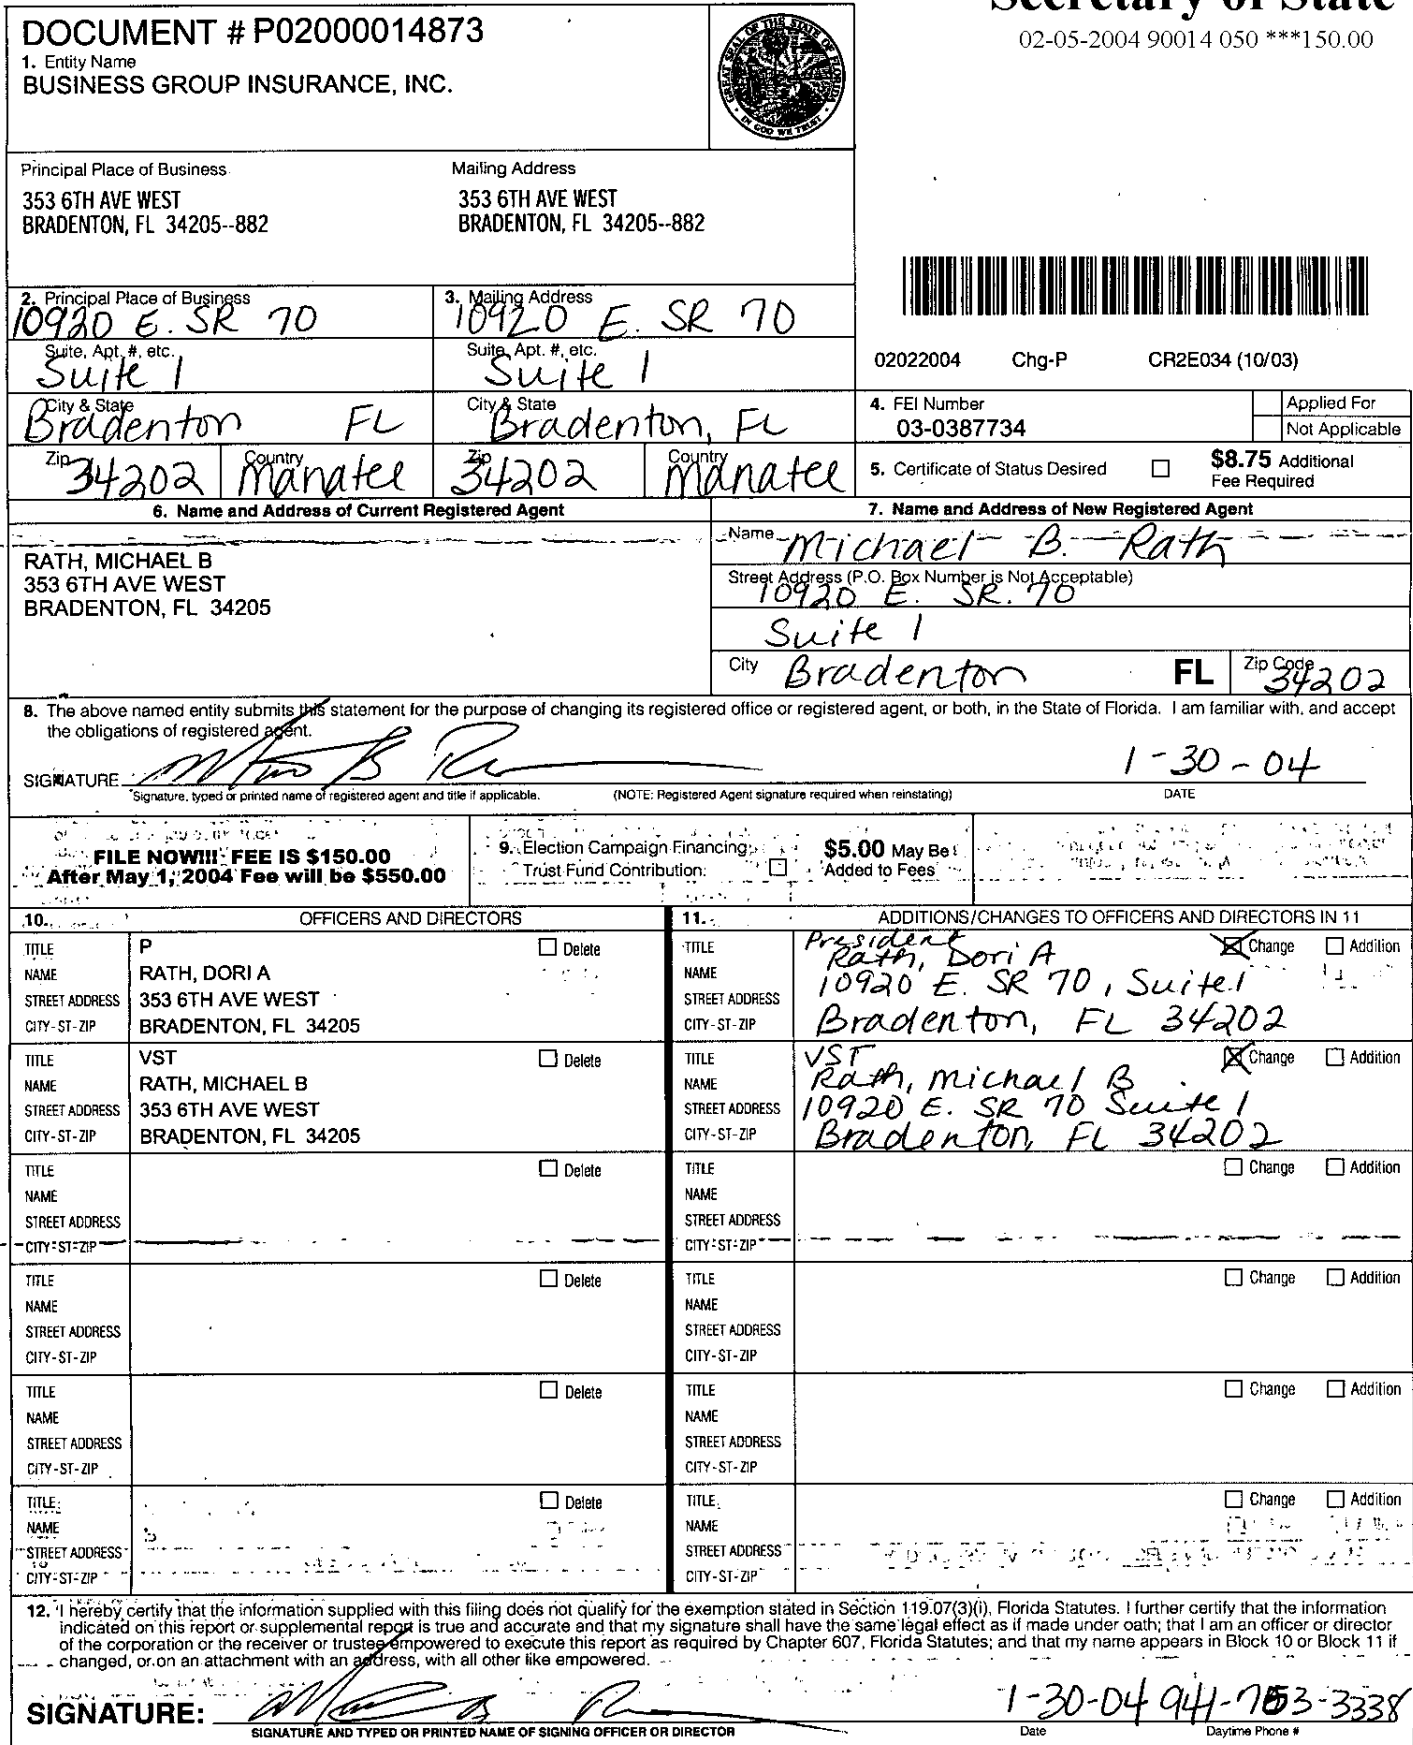 Secretary of State
02-05-2004 90014 050 ***150.00
DOCUMENT # P02000014873
1. Entity Name
BUSINESS GROUP INSURANCE, INC.
GREAT SEAL OF THE STATE OF FLORIDA
IN GOD WE TRUST
Principal Place of Business
353 6TH AVE WEST
BRADENTON, FL 34205--882
Mailing Address
353 6TH AVE WEST
BRADENTON, FL 34205--882
2. Principal Place of Business
10920 E. SR 70
Suite, Apt. #, etc.
Suite 1
City & State
Bradenton FL
Zip 34202 Country Manatee
3. Mailing Address
10920 E. SR 70
Suite, Apt. #, etc.
Suite 1
City & State
Bradenton, FL
Zip 34202 Country Manatee
02022004 Chg-P CR2E034 (10/03)
4. FEI Number
03-0387734
Applied For
Not Applicable
5. Certificate of Status Desired
$8.75 Additional
Fee Required
6. Name and Address of Current Registered Agent
RATH, MICHAEL B
353 6TH AVE WEST
BRADENTON, FL 34205
7. Name and Address of New Registered Agent
Name Michael B. Rath
Street Address (P.O. Box Number is Not Acceptable)
10920 E. SR. 70
Suite 1
City Bradenton FL Zip Code 34202
8. The above named entity submits this statement for the purpose of changing its registered office or registered agent, or both, in the State of Florida. I am familiar with, and accept
the obligations of registered agent.
SIGNATURE 1-30-04
Signature, typed or printed name of registered agent and title if applicable. (NOTE: Registered Agent signature required when reinstating) DATE
FILE NOW!!! FEE IS $150.00
After May 1, 2004 Fee will be $550.00
9. Election Campaign Financing
Trust Fund Contribution.
$5.00 May Be
Added to Fees
10. OFFICERS AND DIRECTORS
TITLE P Delete
NAME RATH, DORI A
STREET ADDRESS 353 6TH AVE WEST
CITY-ST-ZIP BRADENTON, FL 34205
TITLE VST Delete
NAME RATH, MICHAEL B
STREET ADDRESS 353 6TH AVE WEST
CITY-ST-ZIP BRADENTON, FL 34205
TITLE Delete
NAME
STREET ADDRESS
CITY-ST-ZIP
TITLE Delete
NAME
STREET ADDRESS
CITY-ST-ZIP
TITLE Delete
NAME
STREET ADDRESS
CITY-ST-ZIP
TITLE Delete
NAME
STREET ADDRESS
CITY-ST-ZIP
11. ADDITIONS/CHANGES TO OFFICERS AND DIRECTORS IN 11
TITLE President Change Addition
NAME Rath, Dori A
STREET ADDRESS 10920 E. SR 70, Suite 1
CITY-ST-ZIP Bradenton, FL 34202
TITLE VST Change Addition
NAME Rath, Michael B
STREET ADDRESS 10920 E. SR 70 Suite 1
CITY-ST-ZIP Bradenton, FL 34202
TITLE Change Addition
NAME
STREET ADDRESS
CITY-ST-ZIP
TITLE Change Addition
NAME
STREET ADDRESS
CITY-ST-ZIP
TITLE Change Addition
NAME
STREET ADDRESS
CITY-ST-ZIP
TITLE Change Addition
NAME
STREET ADDRESS
CITY-ST-ZIP
12. I hereby certify that the information supplied with this filing does not qualify for the exemption stated in Section 119.07(3)(i), Florida Statutes. I further certify that the information
indicated on this report or supplemental report is true and accurate and that my signature shall have the same legal effect as if made under oath; that I am an officer or director
of the corporation or the receiver or trustee empowered to execute this report as required by Chapter 607, Florida Statutes; and that my name appears in Block 10 or Block 11 if
changed, or on an attachment with an address, with all other like empowered.
SIGNATURE: 1-30-04 941-753-3338
SIGNATURE AND TYPED OR PRINTED NAME OF SIGNING OFFICER OR DIRECTOR Date Daytime Phone #